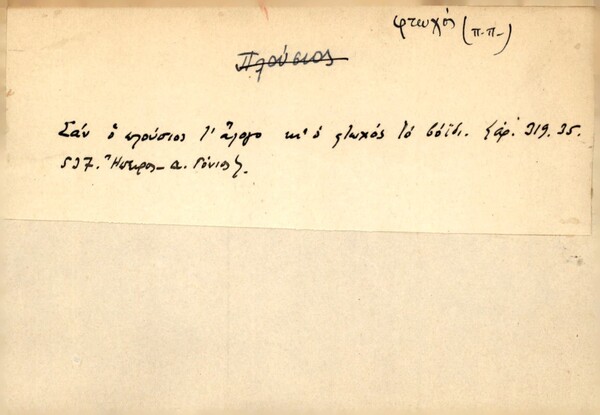 φτωχός (π.π.)
πλούσιος
Σάν ὁ πλούσιος τ' ἄλογο κι' ὁ φτωχός τό βόϊδι. 319. 35.
537. Ἤπειρος - Δ.